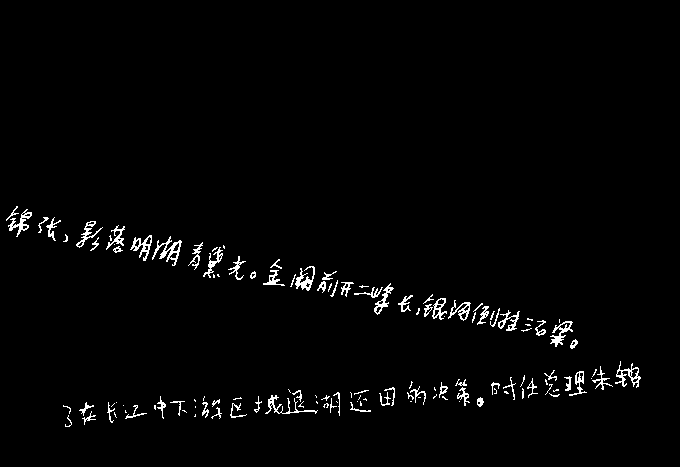 锦张,影落明湖青黛光。金阙前开二峰长,银河倒挂三石梁。
了在长江中下游区域退湖还田的决策。时任总理朱镕